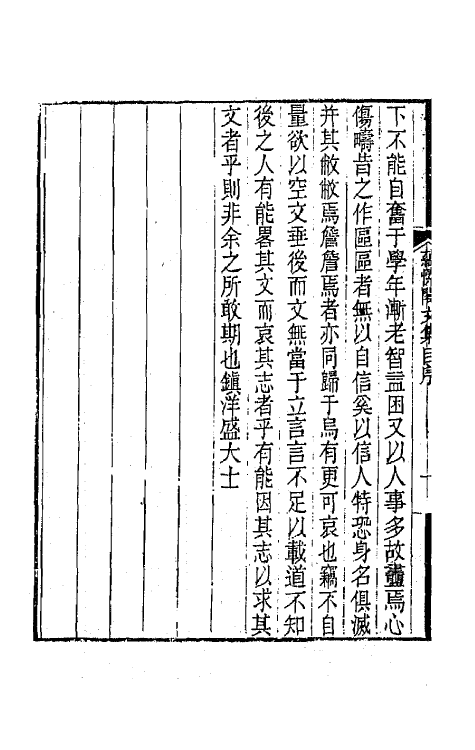 下不能自奮于學年漸老智益困又以人事多故衋焉心
傷疇昔之作區區者無以自信奚以信人特恐身名俱滅
并其敝敝焉詹詹焉者亦同歸于烏有更可哀也竊不自
量欲以空文垂後而文無當于立言言不足以載道不知
後之人有能畧其文而哀其志者乎有能因其志以求其
文者乎則非余之所敢期也鎮洋盛大士
蘊愫閣文集自序